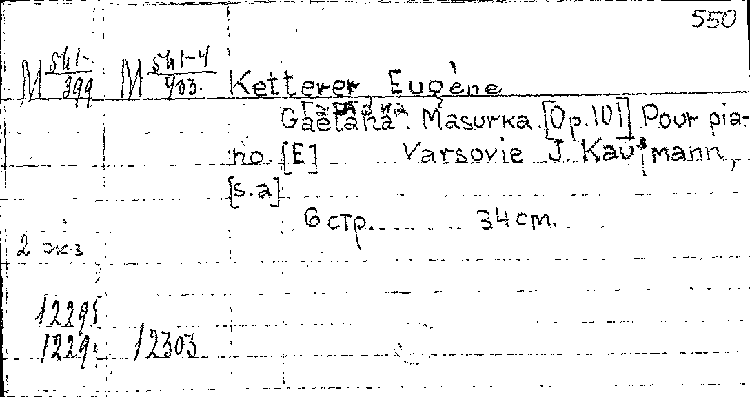 550
М 541- М 541-4
399 403. Ketterer Eugène
Gaetana. Masurka. [Op.101] Pour pia-
no. [E] Varsovie J. Kaufmann,
[s.a]
6 стр. 34 cm.
2 экз
12295
1229 12303